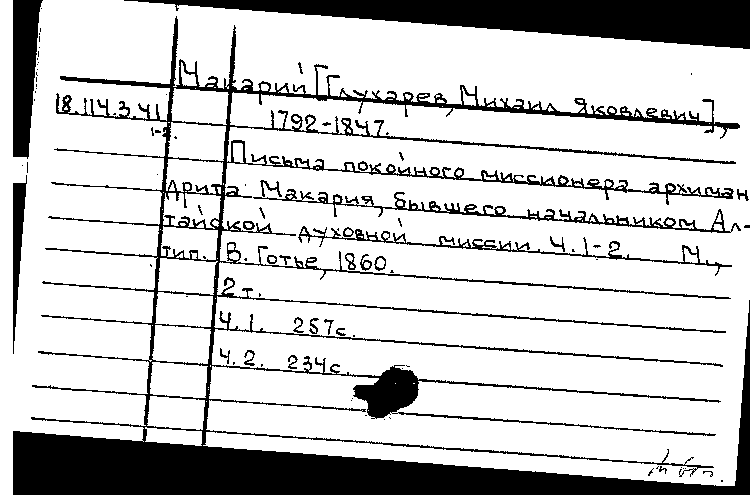 Макарий [Глухарев, Михаил Яковлевич],
18.114.3.41 1792-1847.
1-2.
Письма покойного миссионера архиман
дрита Макария, бывшего начальником Ал-
тайской духовной миссии. Ч.1-2. М.,
тип. В. Готье, 1860.
2 т.
Ч. 1. 257с.
Ч. 2. 234с.